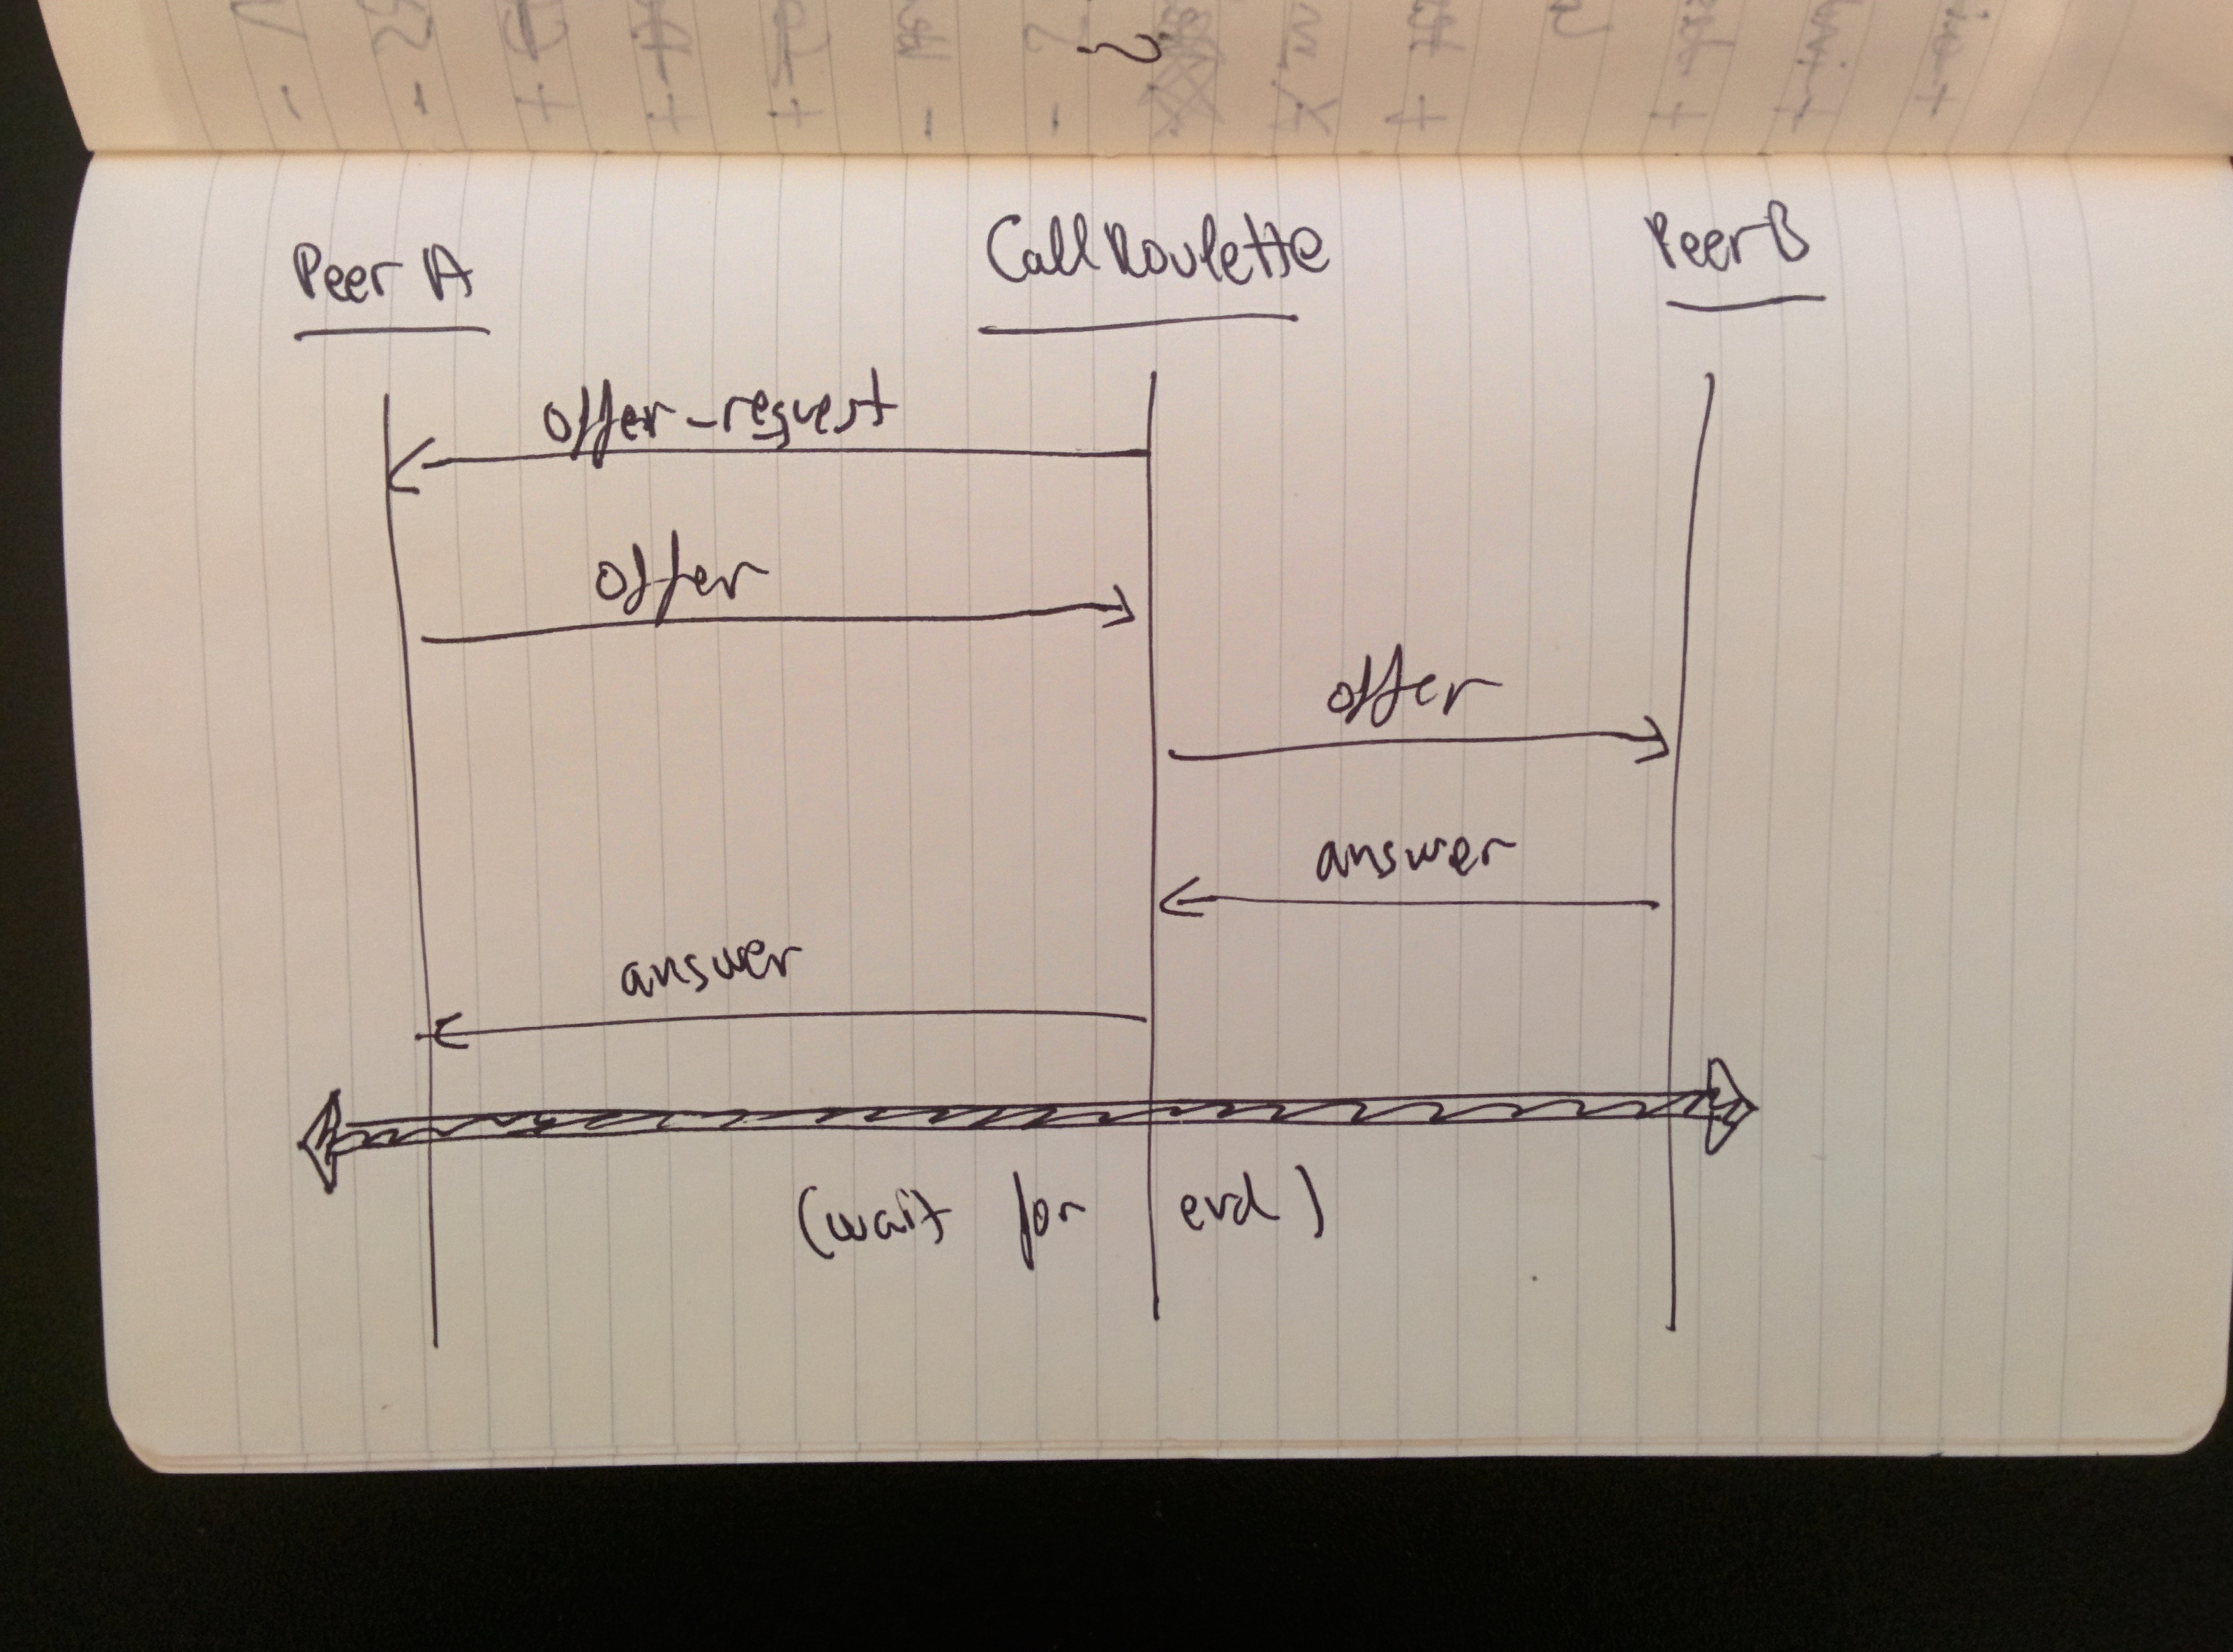 Peer A CallRoulette Peer B
offer-request
offer
offer
answer
answer
(wait for end)